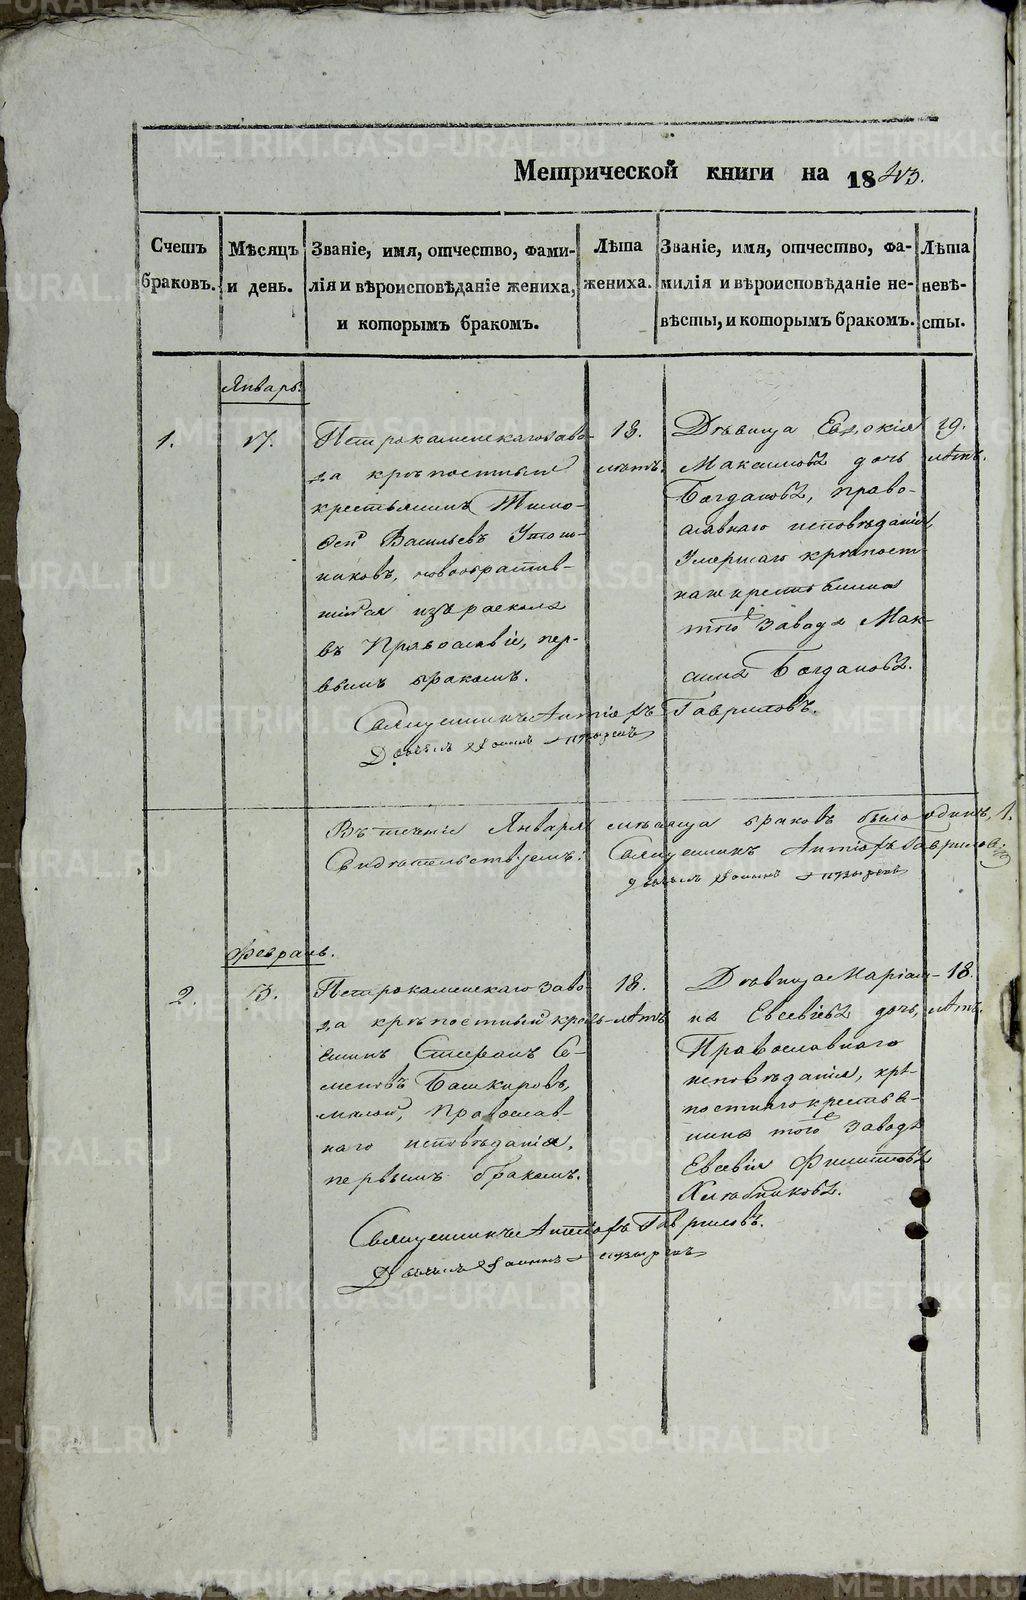 Метрической книги на 1843.
Счетъ браковъ.
Мѣсяцъ и день.
Званіе, имя, отчество, фами-
лія и вѣроисповѣданіе жениха,
и которымъ бракомъ.
Лѣта
жениха.
Званіе, имя, отчество, фа-
милія и вѣроисповѣданіе не-
вѣсты, и которымъ бракомъ.
Лѣта
невѣ-
сты.
Январь.
1.
17.
Петрокаменскаго заво-
да крѣпостный
крестьянинъ Тимо-
фей Васильевъ
новообратив-
шійся изъ раскола
въ Православіе, пер-
вымъ бракомъ.
18.
лѣтъ.
Дѣвица Евдокія
Максимова дочь
Богданова, право-
славнаго исповѣданія,
Умершаго крѣпост-
наго крестьянина
того завода Мак-
сима Богданова.
19.
лѣтъ.
Священникъ Антіохъ Гавриловъ.
Въ теченіе Января мѣсяца браковъ было одинъ, 1.
Свидѣтельствуемъ: Священникъ Антіохъ Гавриловъ
Февраль.
2.
3.
Петрокаменскаго заво-
да крѣпостный кресть-
янинъ Стефанъ Се-
меновъ Башкировъ,
Православ-
наго исповѣданія,
первымъ бракомъ.
18.
лѣтъ
Дѣвица Маріам-
на Евсевіева дочь,
Православнаго
исповѣданія, крѣ-
постнаго крестья-
нина того завода
Евсевія Филиппова
Хлѣбникова.
18.
лѣтъ.
Священникъ Антіохъ Гавриловъ.
METRIKI.GASO-URAL.RU